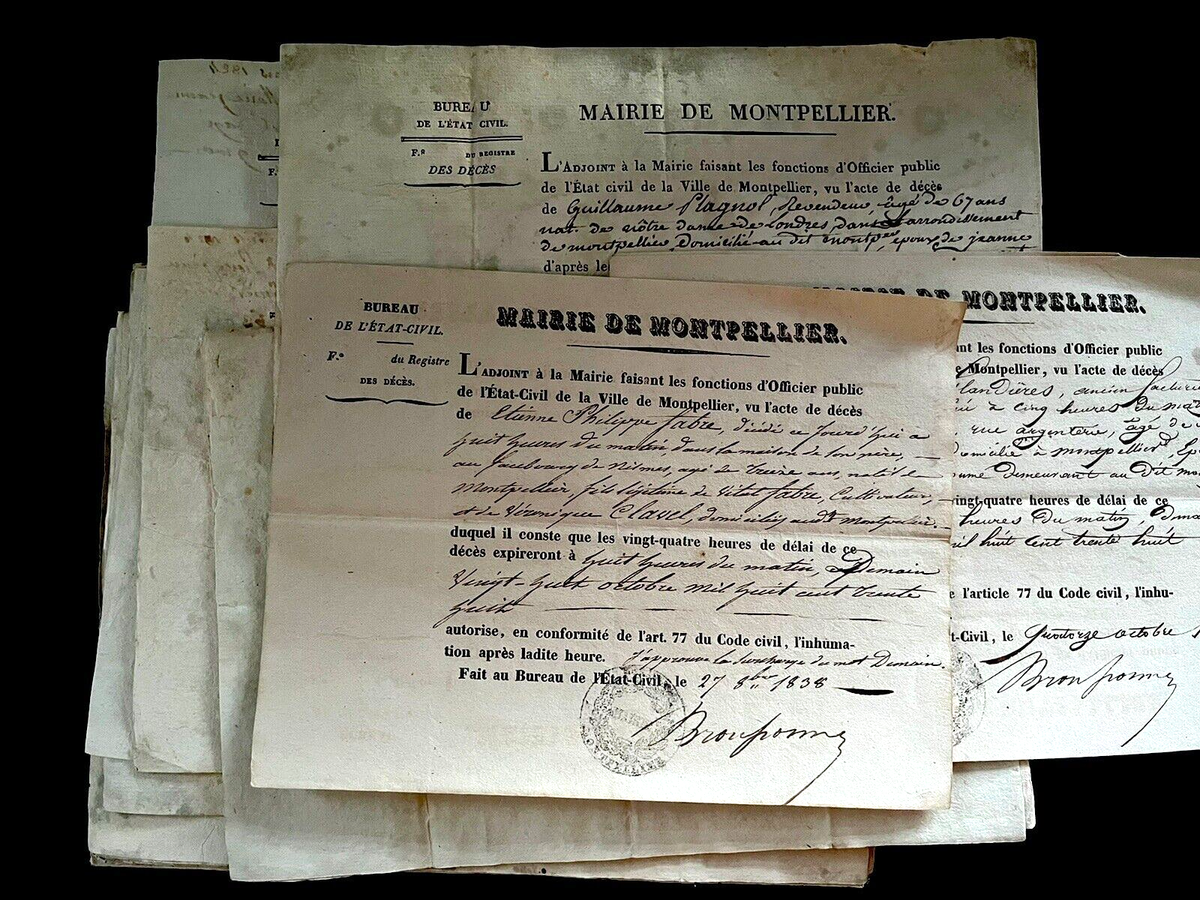 1824
BUREAU
DE L'ÉTAT CIVIL.
F.º DU REGISTRE
DES DÉCÈS
MAIRIE DE MONTPELLIER.
L'ADJOINT à la Mairie faisant les fonctions d'Officier public
de l'État civil de la Ville de Montpellier, vu l'acte de décès
de Guillaume Plagnol, Revendeur âgé de 67 ans
nat. de nôtre dame de Londres dans l'arrondissement
de montpellier, domicilié au dit montp.er époux de jeanne
d'après le
BUREAU
DE L'ÉTAT-CIVIL.
F.º du Registre
DES DÉCÈS.
MAIRIE DE MONTPELLIER.
L'ADJOINT à la Mairie faisant les fonctions d'Officier public
de l'État-Civil de la Ville de Montpellier, vu l'acte de décès
de Etienne Philippe fabre, décédé ce jourd'hui a
huit heures du matin, dans la maison de son père,
au faubourg de Nismes, agé de treize ans, natif de
Montpellier, fils légitime de Vital fabre, Cultivateur,
et de Véronique Clavel, domiciliés audt. Montpellier.
duquel il conste que les vingt-quatre heures de délai de ce
décès expireront à huit heures du matin, Demain
Vingt-huit octobre mil huit cent trente
huit
autorise, en conformité de l'art. 77 du Code civil, l'inhuma-
tion après ladite heure. J'approuve la surcharge du mot Demain.
Fait au Bureau de l'État-Civil, le 27 8bre 1838
MAIRIE
MONTPELLIER
DE MONTPELLIER.
ant les fonctions d'Officier public
e Montpellier, vu l'acte de décès
ancien
à cinq heures du mat
rue argenterie, âgé de
domicilié à montpellier,
demeurant au dit mo
vingt-quatre heures de délai de ce
heures du matin, dema
mil huit cent trente huit
e l'article 77 du Code civil, l'inhu-
t-Civil, le Quatorze octobre